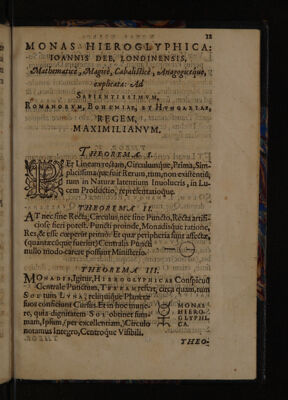 12
MONAS HIEROGLYPHICA:
IOANNIS DEE, LONDINENSIS,
Mathematicè, Magicè, Cabalisticè, Anagogicéque,
explicata: Ad
SAPIENTISSIMVM,
ROMANORVM, BOHEMIAE, ET HVNGARIAE,
REGEM,
MAXIMILIANVM.
THEOREMA I.
PEr Lineam rectam, Circulumque, Prima, Sim-
plicissimaque fuit Rerum, tum, non existentiū,
tum in Naturæ latentium Inuolucris, in Lu-
cem Productio, representatioque.
THEOREMA II.
AT nec sine Recta, Circulus; nec sine Puncto, Recta artifi-
ciose fieri potest. Puncti proinde, Monadisque ratione,
Res, & esse cœperunt primò: Et quæ peripheria sunt affectæ,
(quantæcūque fuerint) Centralis Puncti
nullo modo carere possunt Ministerio.
THEOREMA III.
MONADIS, Igitur, HIEROGLYPHICAE Conspicuū
Centrale Punctum, TERRAM refert, circa quam, tum
SOL tum LVNA, reliquique Planetæ
suos conficiunt Cursus. Et in hoc mune-
re, quia dignitatem SOL obtinet sum-
mam, Ipsum, (per excellentiam,) Circulo
notamus Integro, Centroque Visibili.
MONAS
HIERO-
GLYPHI-
CA.
THEO-